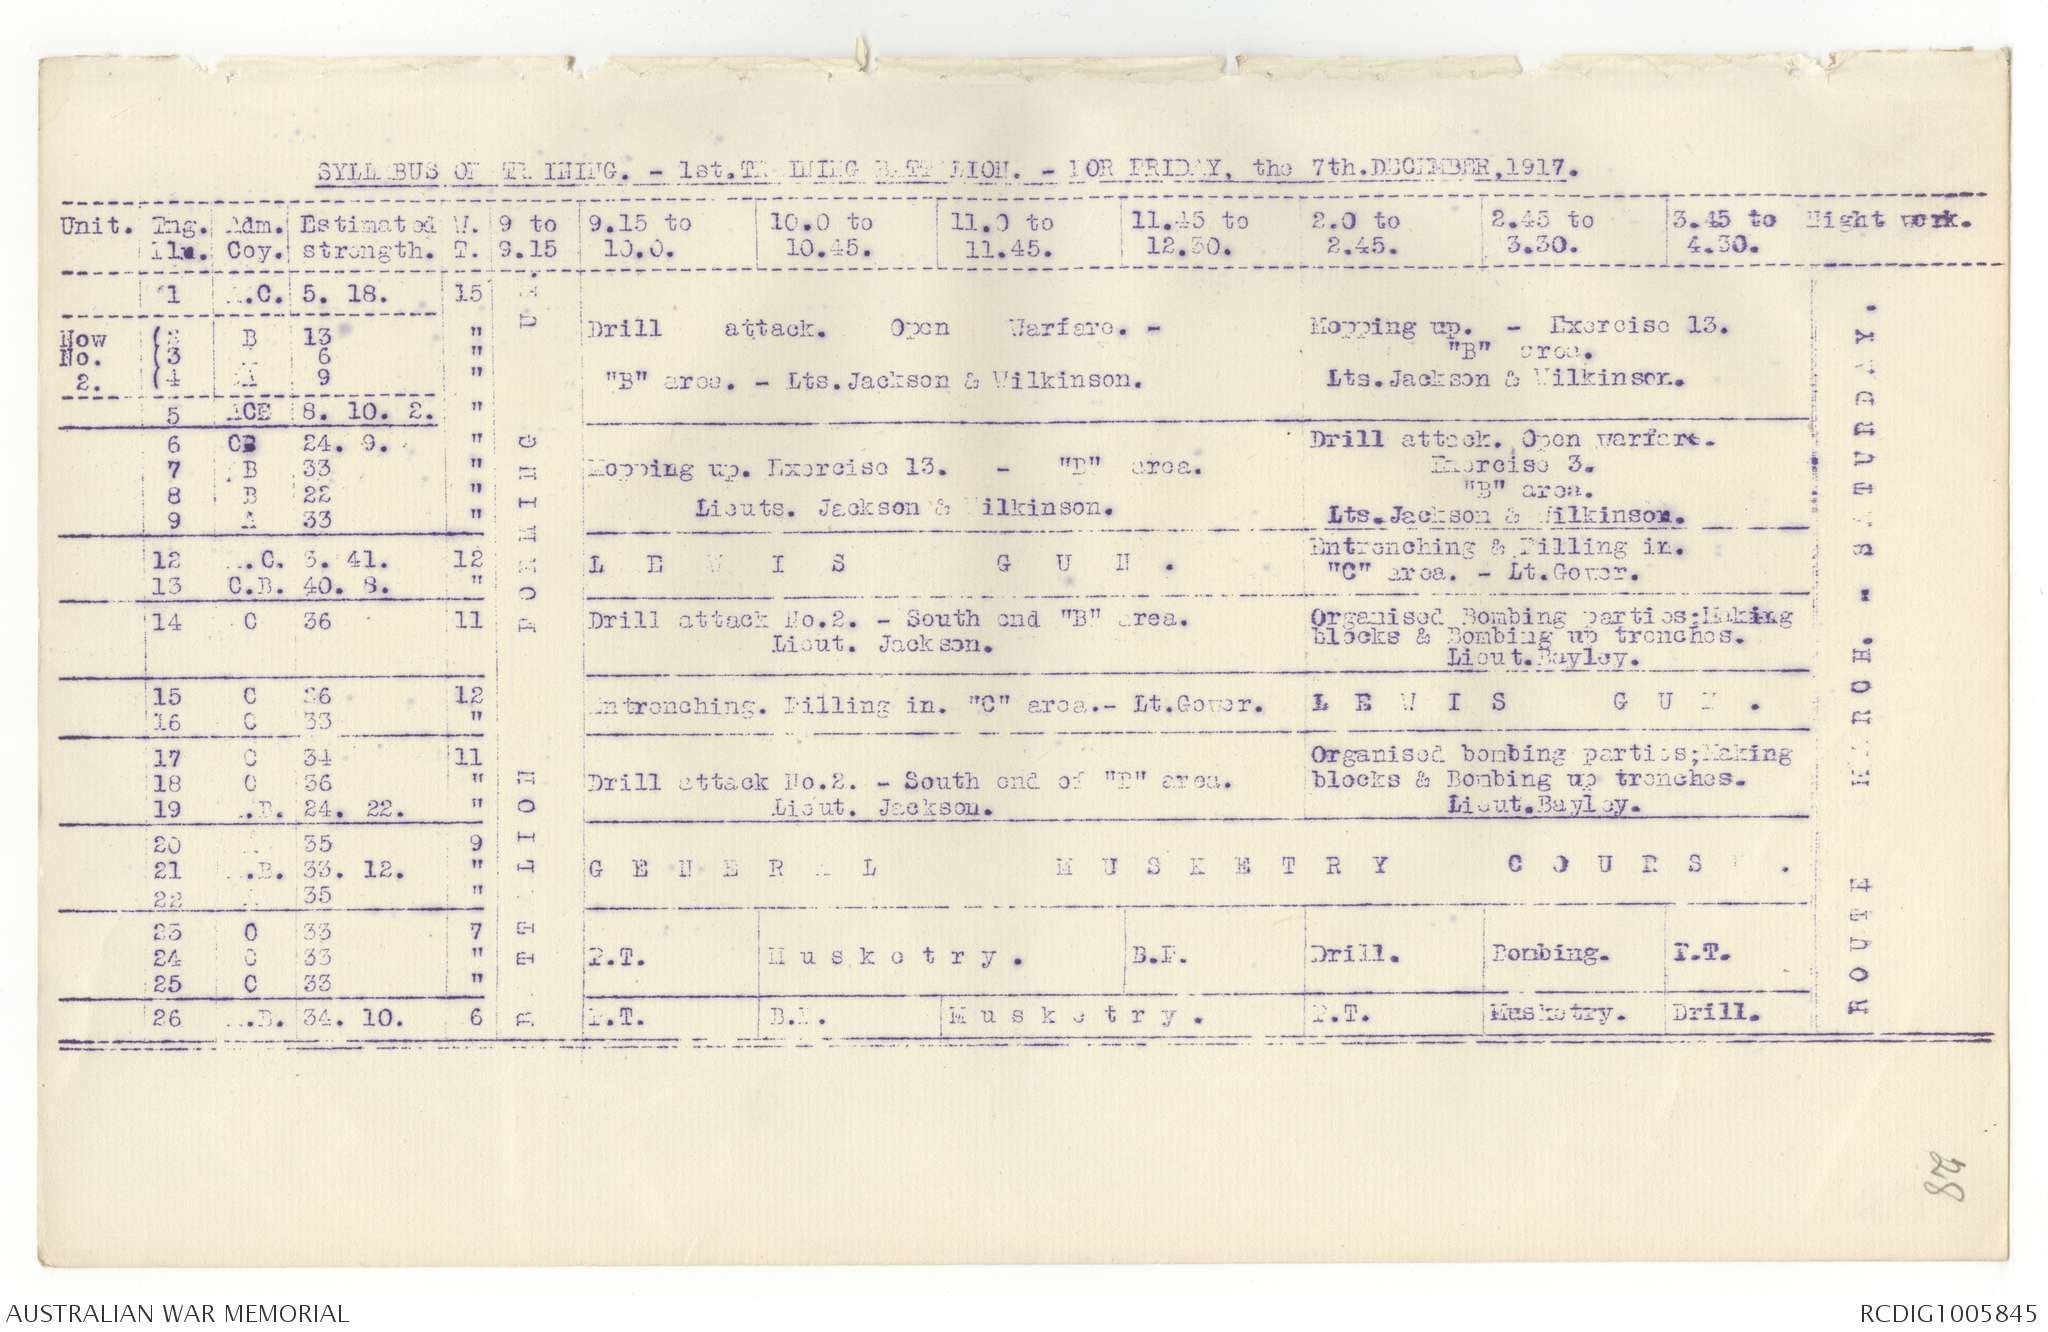 SYLLABUS OF TRAINING. - 1st.TRAINING BATTALION. - FOR FRIDAY, the 7th.DECEMBER,1917.
Unit. Tng. Adm. Estimated W. 9 to 9.15 to 10.0 to 11.0 to 11.45 to 2.0 to 2.45 to 3.45 to Night work.
Pln. Coy. strength. T. 9.15 10.0. 10.45. 11.45. 12.30. 2.45. 3.30. 4.30.
1 A.C. 5. 18. 15
Now (2 B 13 "
No. (3 6 "
2. (4 A 9 "
Drill attack. Open Warfare. -
"B" area. - Lts.Jackson & Wilkinson.
Mopping up. - Exercise 13.
"B" area.
Lts.Jackson & Wilkinson.
5 ACB 8. 10. 2. "
6 CB 24. 9. "
7 B 33 "
8 B 22 "
9 A 33 "
Mopping up. Exercise 13. - "B" area.
Lieuts. Jackson & Wilkinson.
Drill attack. Open warfare.
Exercise 3.
"B" area.
Lts.Jackson & Wilkinson.
12 A.C. 3. 41. 12
13 C.B. 40. 8. "
LEWIS GUN.
Entrenching & Filling in.
"C" area. - Lt.Gower.
14 C 36 11
Drill attack No.2. - South end "B" area.
Lieut. Jackson.
Organised Bombing parties;Making
blocks & Bombing up trenches.
Lieut.Bayley.
15 C 36 12
16 C 33 "
Entrenching. Filling in. "C" area.- Lt.Gower.
LEWIS GUN.
17 C 34 11
18 C 36 "
19 A.B. 24. 22. "
Drill attack No.2. - South end of "B" area.
Lieut. Jackson.
Organised bombing parties;Making
blocks & Bombing up trenches.
Lieut.Bayley.
20 A 35 9
21 A.B. 33. 12. "
22 A 35 "
GENERAL MUSKETRY COURSE.
23 C 33 7
24 C 33 "
25 C 33 "
P.T. Musketry. B.F. Drill. Bombing. P.T.
26 A.B. 34. 10. 6 P.T. B.F. Musketry. P.T. Musketry. Drill.
BATTALION FORMING UP.
ROUTE MARCH. - SATURDAY.
AUSTRALIAN WAR MEMORIAL
RCDIG1005845